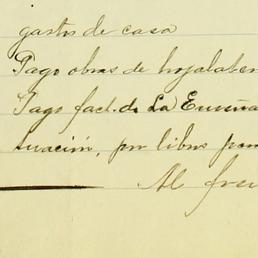 gastos de casa
Pago obras de hojalater
Pago fact. de La Enseña
tuación, por libros para
Al fren